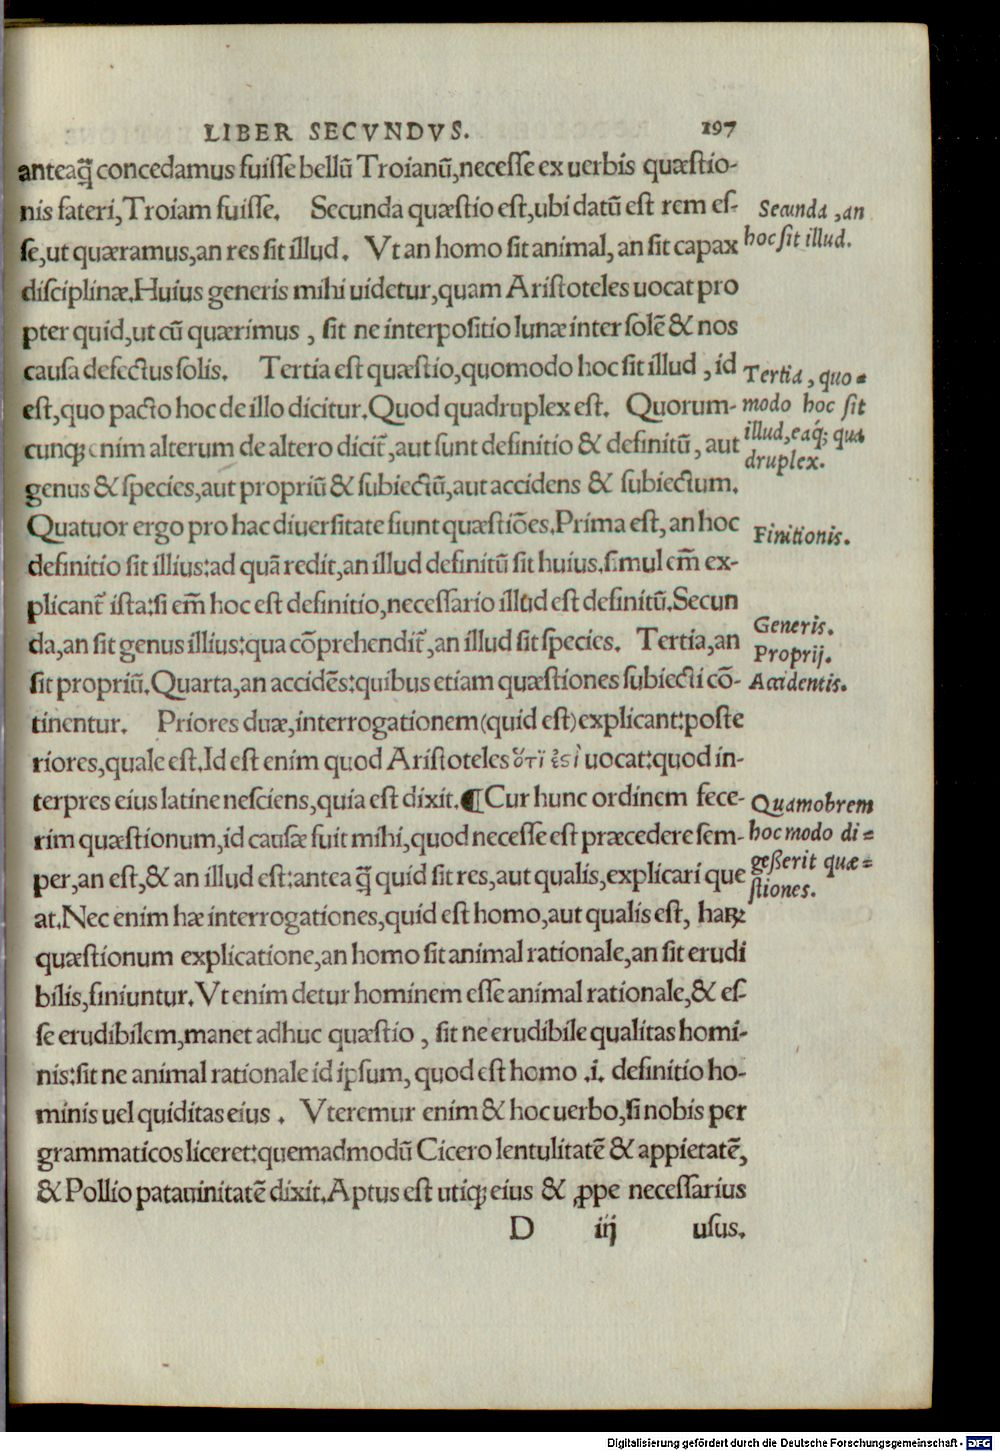 LIBER SECVNDVS. 197
anteaq̃ concedamus fuisse bellũ Troianũ,necesse ex uerbis quæstio-
nis fateri,Troiam fuisse. Secunda quæstio est,ubi datũ est rem es-
Secunda ,an
se,ut quæramus,an res sit illud. Vt an homo sit animal, an sit capax
hoc sit illud.
disciplinæ.Huius generis mihi uidetur,quam Aristoteles uocat pro
pter quid,ut cũ quærimus , sit ne interpositio lunæ inter solẽ & nos
causa defectus solis. Tertia est quæstio,quomodo hoc sit illud , id
Tertia , quo=
est,quo pacto hoc de illo dicitur.Quod quadruplex est. Quorum-
modo hoc sit
cunq; enim alterum de altero dicit᷑,aut sunt definitio & definitũ, aut
illud,eaq; qua
druplex.
genus & species,aut propriũ & subiectũ,aut accidens & subiectum.
Quatuor ergo pro hac diuersitate fiunt quæstiões.Prima est, an hoc
Finitionis.
definitio sit illius:ad quã redit,an illud definitũ sit huius.simul em̃ ex-
plicant᷑ ista:si em̃ hoc est definitio,necessario illud est definitũ.Secun
da,an sit genus illius:qua cõprehendit᷑,an illud sit species. Tertia,an
Generis.
Proprij.
sit propriũ.Quarta,an accidẽs:quibus etiam quæstiones subiecti cõ-
Accidentis.
tinentur. Priores duæ,interrogationem(quid est)explicant:poste
riores,quale est.Id est enim quod Aristoteles ὅτι ἐϛὶ uocat:quod in-
terpres eius latine nesciens,quia est dixit.¶Cur hunc ordinem fece-
Quamobrem
rim quæstionum,id causæ fuit mihi,quod necesse est præcedere sem-
hoc modo di=
per,an est,& an illud est:antea q̃ quid sit res,aut qualis,explicari que
geßerit quæ=
stiones.
at.Nec enim hæ interrogationes,quid est homo,aut qualis est, haꝝ
quæstionum explicatione,an homo sit animal rationale,an sit erudi
bilis,finiuntur.Vt enim detur hominem esse animal rationale,& es-
se erudibilem,manet adhuc quæstio , sit ne erudibile qualitas homi-
nis:sit ne animal rationale id ipsum, quod est homo .i. definitio ho-
minis uel quiditas eius . Vteremur enim & hoc uerbo,si nobis per
grammaticos liceret:quemadmodũ Cicero lentulitatẽ & appietatẽ,
& Pollio patauinitatẽ dixit.Aptus est utiq; eius & ꝓpe necessarius
D iij usus.
Digitalisierung gefördert durch die Deutsche Forschungsgemeinschaft - DFG